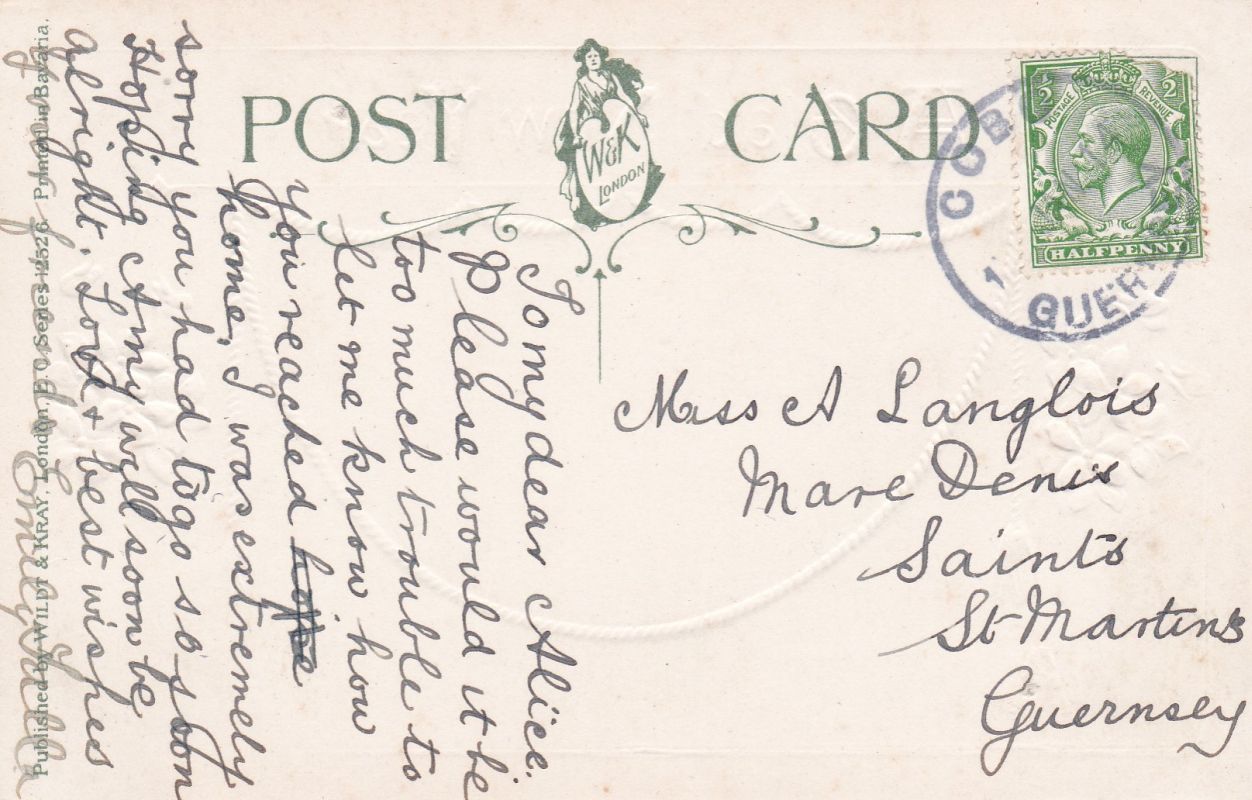 POST CARD
W&K
LONDON
½ ½
POSTAGE REVENUE
HALFPENNY
COB
1
GUER
To my dear Alice.
Please would it be
too much trouble to
let me know how
you reached hope
home, I was extremely
sorry you had to go so soon
Hoping Amy will soon be
alright. Love & best wishes
Miss A Langlois
Mare Denis
Saints
St Martins
Guernsey
Published by WILDT & KRAY, London, E.C. Series 2526. Printed in Bavaria.